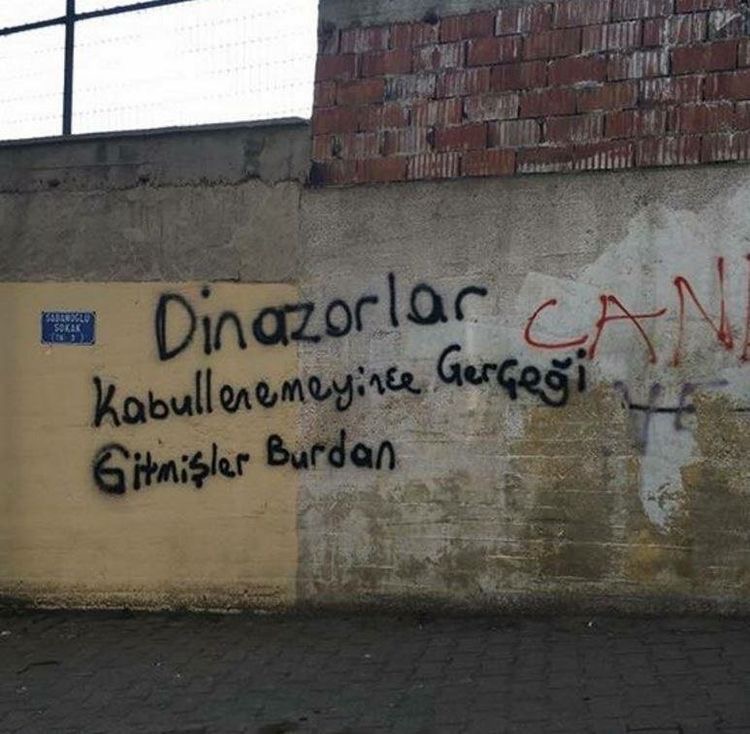 Dinazorlar
Kabullenemeyince Gerçeği
Gitmişler Burdan
SABANOĞLU
SOKAK
CAN